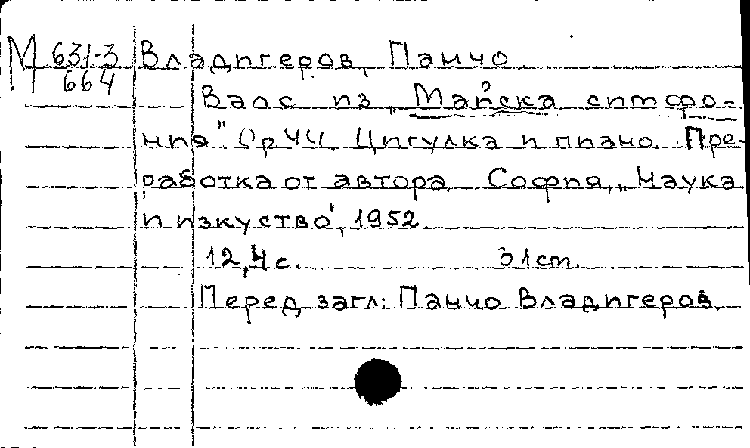 М 631-3 Владигеров, Панчо
664
Валс из „Майска симфо-
ния". Ор 44. Цигулка и пиано. Пре-
работка от автора София, „Наука
и изкуство", 1952
12,4 с. 31 cm.
Перед загл: Панчо Владигеров.